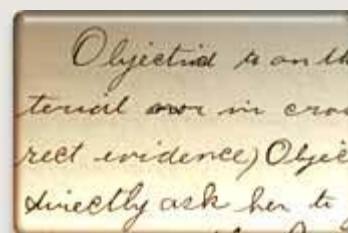 Objected to on th
terial or in cros
rect evidence) Objec
directly ask her to